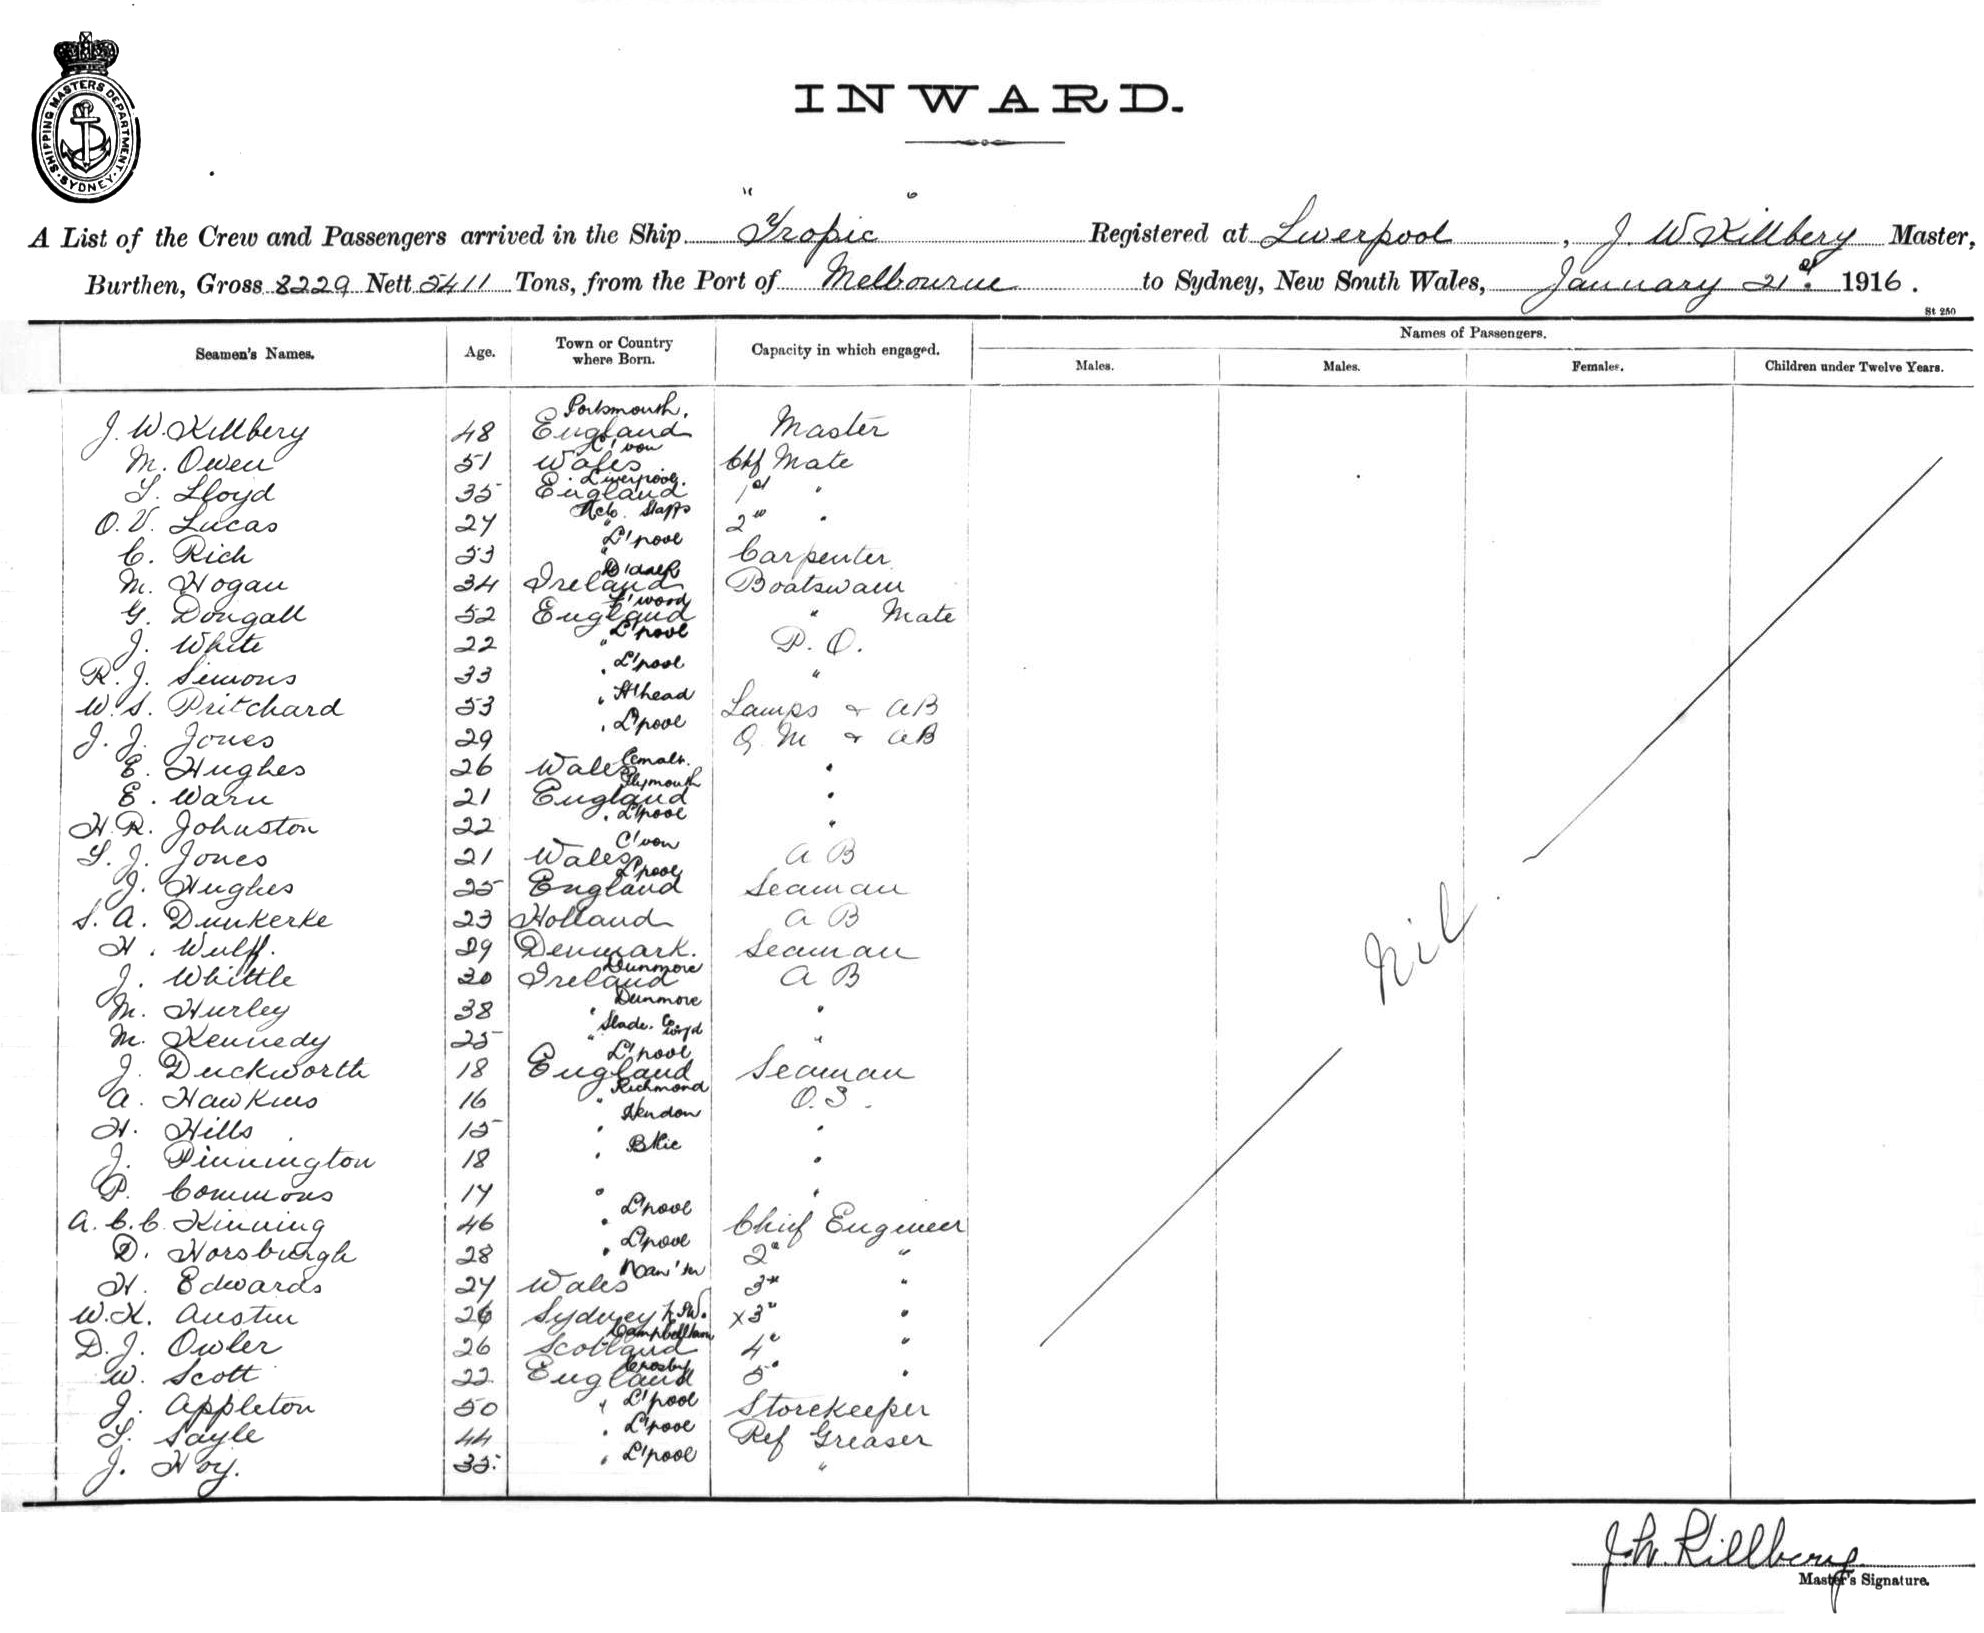 SHIPPING MASTERS DEPARTMENT. SYDNEY.
INWARD.
A List of the Crew and Passengers arrived in the Ship "Tropic" Registered at Liverpool, J. W. Killbery Master,
Burthen, Gross 8229 Nett 5411 Tons, from the Port of Melbourne to Sydney, New South Wales, January 21st. 1916.
St 250
Names of Passengers.
Seamen's Names. Age. Town or Country where Born. Capacity in which engaged. Males. Males. Females. Children under Twelve Years.
J. W. Killbery 48 Portsmouth. England Master
M. Owen 51 C'von Wales Chf Mate
T. Lloyd 35 Liverpool. England 1st "
O. V. Lucas 27 " Staffs 2nd "
C. Rich 53 " L'pool Carpenter
M. Hogan 34 Ireland D'dalk Boatswain
G. Dougall 52 England F'wood " Mate
J. White 22 " L'pool P. O.
R. J. Simons 33 " L'pool "
W. S. Pritchard 53 " H'head Lamps & AB
J. J. Jones 29 " L'pool Q. M & AB
E. Hughes 26 Wales "
E. Warn 21 England Plymouth "
H. R. Johnston 22 " L'pool "
T. J. Jones 21 Wales C'von A B
J. Hughes 25 England L'pool Seaman
S. A. Dunkerke 23 Holland A B
H. Wulff. 29 Denmark. Seaman
J. Whittle 30 Ireland Dunmore A B
M. Hurley 38 " Dunmore "
M. Kennedy 25 " Slade. Co "
J. Duckworth 18 England L'pool Seaman
A. Hawkins 16 " Richmond O. S.
H. Hills 15 " Hendon "
J. Pinnington 18 " "
P. Commons 17 " "
A. C. C. Kinning 46 " L'pool Chief Engineer
D. Horsburgh 28 " L'pool 2" "
H. Edwards 27 Wales 3rd "
W. K. Austin 26 Sydney N.S.W. x3" "
D. J. Owler 26 Scotland 4" "
W. Scott 22 England Crosby 5" "
J. Appleton 50 " L'pool Storekeeper
T. Sayle 44 " L'pool Ref Greaser
J. Hoy. 35 " L'pool "
Nil.
J. W. Killbery
Master's Signature.